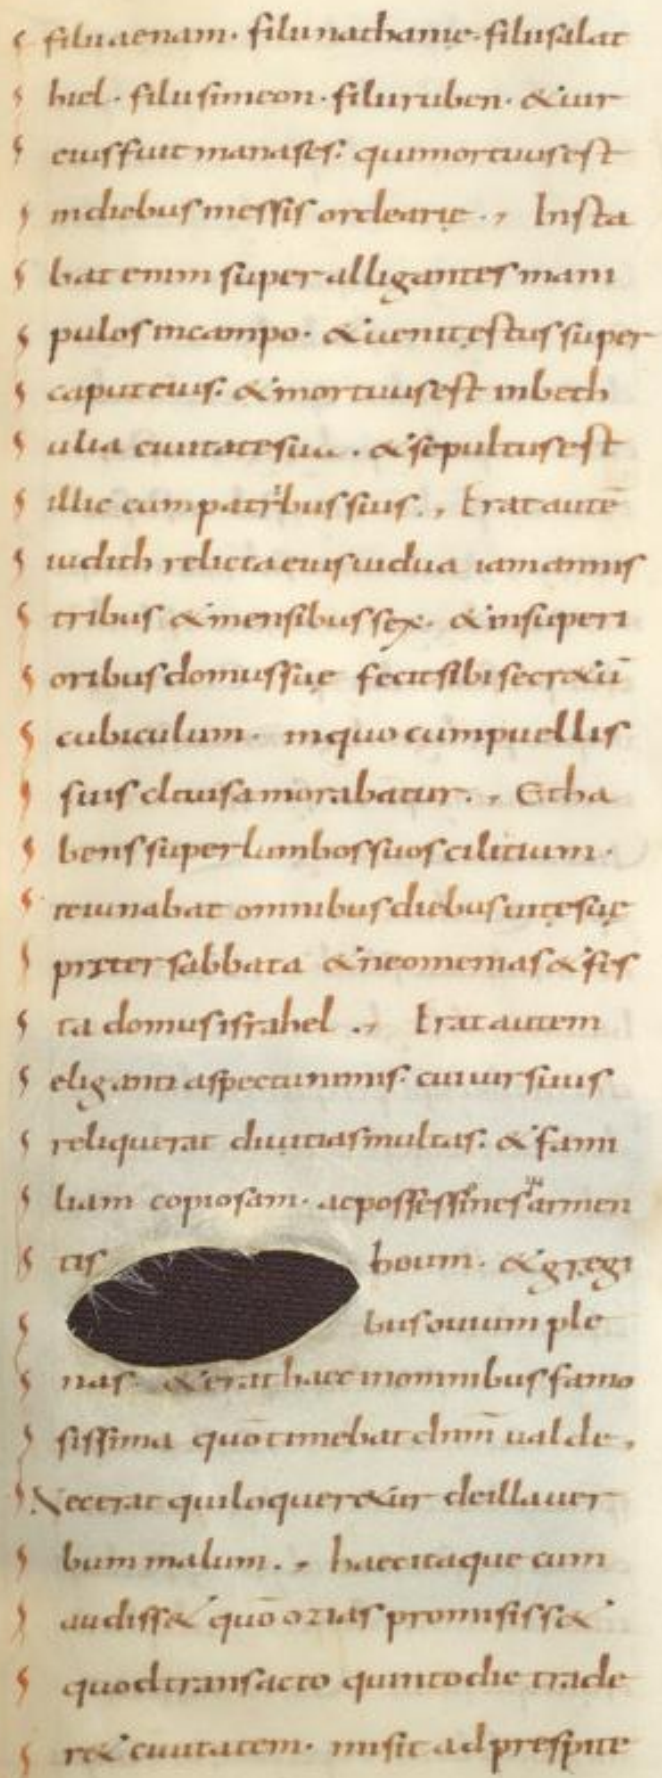 filii aenam· filii nathanie· filii salat
hiel· filii simeon· filii ruben· & uir
eius fuit manases: qui mortuus est
in diebus messis ordearię ·, Insta
bat enim super alligantes mani
pulos in campo· & uenit ęstus super
caput eius: & mortuus est in beth
ulia ciuitate sua · & sepultus est
illic cum patribus suis ·, Erat autē
iudith relicta eius uidua iam annis
tribus & mensibus sex· & in superi
oribus domus suę fecit sibi secr&ū
cubiculum· in quo cum puellis
suis clausa morabatur ·, Et ha
bens super lumbos suos cilicium·
ieiunabat omnibus diebus uitę suę
pręter sabbata & neomenias & fes
ta domus israhel ·, Erat autem
eliganti aspectu nimis· cui uir suus
reliquerat diuitias multas: & fami
liam copiosam· ac possessiones armen
tis boum· & gregi
bus ouium ple
nas· & erat haec in omnibus famo
sissima quō timebat dnm̄ ualde,
Nec erat qui loquer&ur de illa uer
bum malum ·, haec itaque cum
audiss& quō ozias promisiss&
quod transacto quinto die trade
r& ciuitatem· misit ad presbite